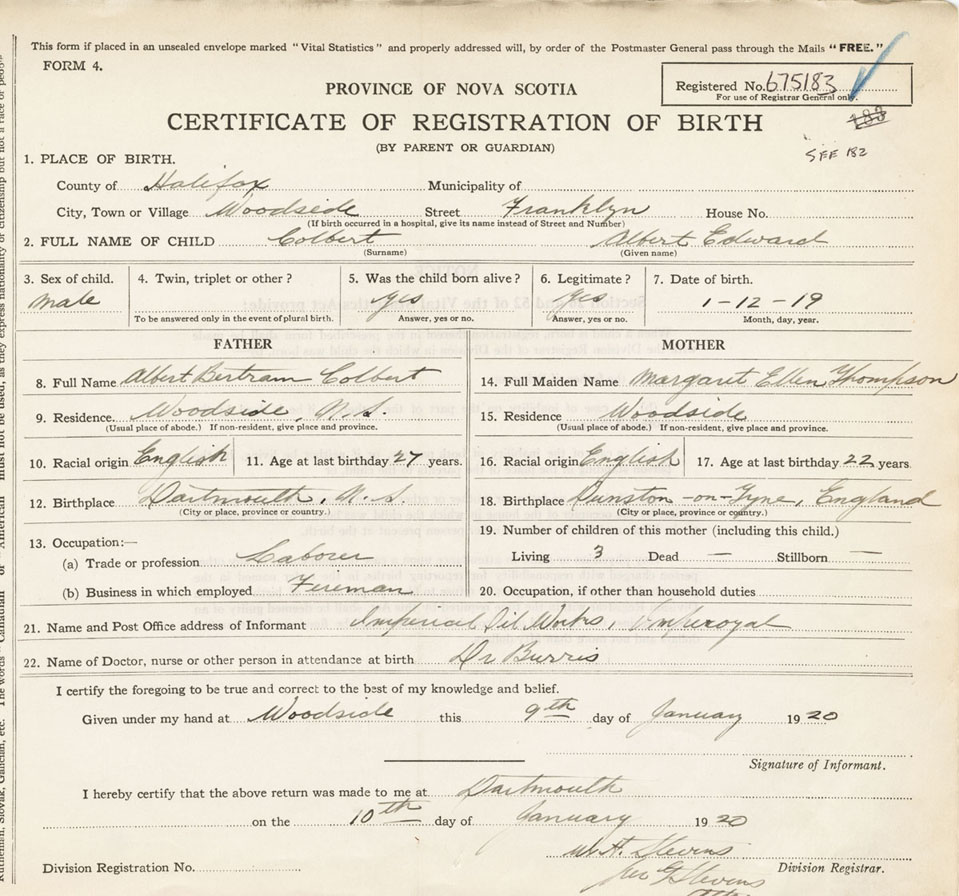 This form if placed in an unsealed envelope marked "Vital Statistics" and properly addressed will, by order of the Postmaster General pass through the Mails "FREE."
FORM 4.
Registered No. 675183
For use of Registrar General only.
PROVINCE OF NOVA SCOTIA
183
CERTIFICATE OF REGISTRATION OF BIRTH
(BY PARENT OR GUARDIAN)
SEE 182
1. PLACE OF BIRTH.
County of Halifax Municipality of
City, Town or Village Woodside Street Franklyn House No.
(If birth occurred in a hospital, give its name instead of Street and Number)
2. FULL NAME OF CHILD Colbert Albert Edward
(Surname) (Given name)
3. Sex of child. 4. Twin, triplet or other? 5. Was the child born alive? 6. Legitimate? 7. Date of birth.
Male yes yes 1-12-19
To be answered only in the event of plural birth. Answer, yes or no. Answer, yes or no. Month, day, year.
FATHER
8. Full Name Albert Bertram Colbert
9. Residence. Woodside, N.S.
(Usual place of abode.) If non-resident, give place and province.
10. Racial origin English 11. Age at last birthday 27 years.
12. Birthplace Dartmouth, N.S.
(City or place, province or country.)
13. Occupation:—
(a) Trade or profession Laborer
(b) Business in which employed Fireman
MOTHER
14. Full Maiden Name Margaret Ellen Thompson
15. Residence Woodside
(Usual place of abode.) If non-resident, give place and province.
16. Racial origin English 17. Age at last birthday 22 years.
18. Birthplace Dunston-on-Tyne, England
(City or place, province or country.)
19. Number of children of this mother (including this child.)
Living 3 Dead — Stillborn —
20. Occupation, if other than household duties
21. Name and Post Office address of Informant Imperial Oil Works, Imperoyal
22. Name of Doctor, nurse or other person in attendance at birth Dr Burris
I certify the foregoing to be true and correct to the best of my knowledge and belief.
Given under my hand at Woodside this 9th day of January 1920
Signature of Informant.
I hereby certify that the above return was made to me at Dartmouth
on the 10th day of January 1920
W. H. Stevens
Stevens
Division Registration No. Division Registrar.